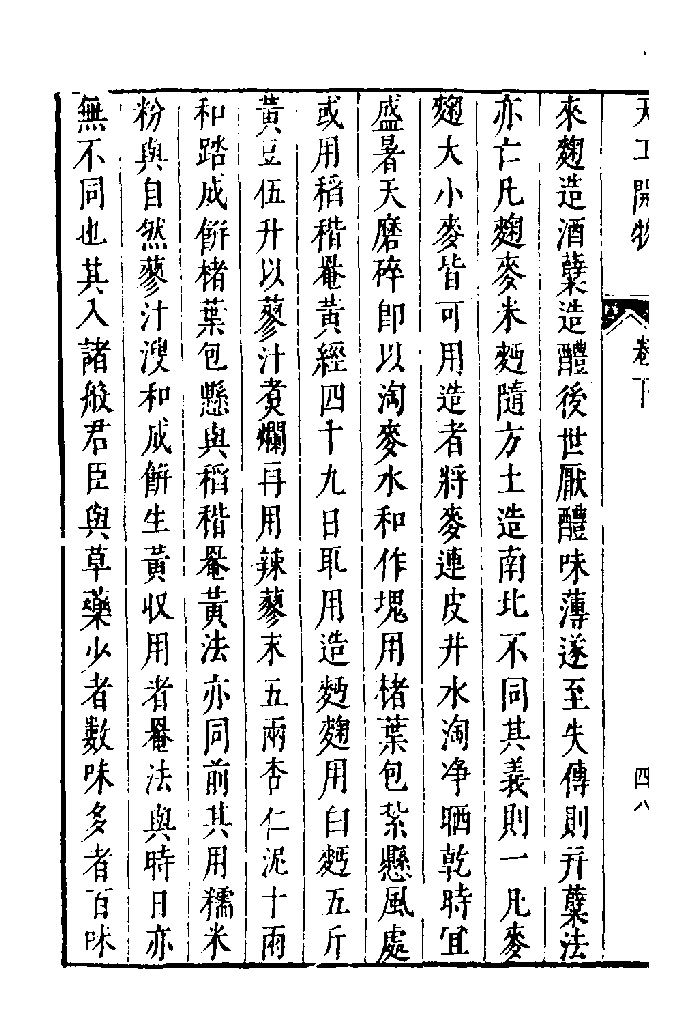 天工開物 卷下 四八
來麴造酒糵造醴後世厭醴味薄遂至失傳則并糵法
亦亡凡麴麥米麪隨方土造南北不同其義則一凡麥
麴大小麥皆可用造者將麥連皮井水淘净晒乾時宜
盛暑天磨碎卽以淘麥水和作塊用楮葉包紥懸風處
或用稻稭罨黄經四十九日取用造麪麴用白麪五斤
黄豆伍升以蓼汁煑爛再用辣蓼末五兩杏仁泥十兩
和踏成餅楮葉包懸與稻稭罨黄法亦同前其用糯米
粉與自然蓼汁溲和成餅生黄収用者罨法與時日亦
無不同也其入諸般君臣與草藥少者數味多者百味